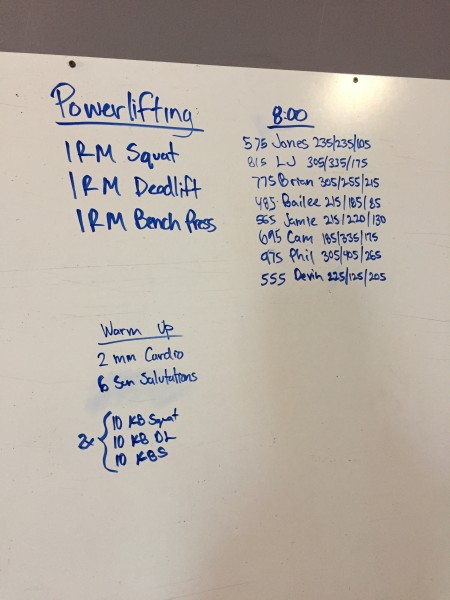 Powerlifting
1RM Squat
1RM Deadlift
1RM Bench Press
8:00
575 Jones 235/235/105
815 LJ 305/335/175
775 Brian 305/255/215
485 Bailee 215/185/85
565 Jamie 215/220/130
695 Cam 185/335/175
975 Phil 305/405/265
555 Devin 225/125/205
Warm Up
2 min Cardio
6 Sun Salutations
2x { 10 KB Squat
10 KB DL
10 KBS